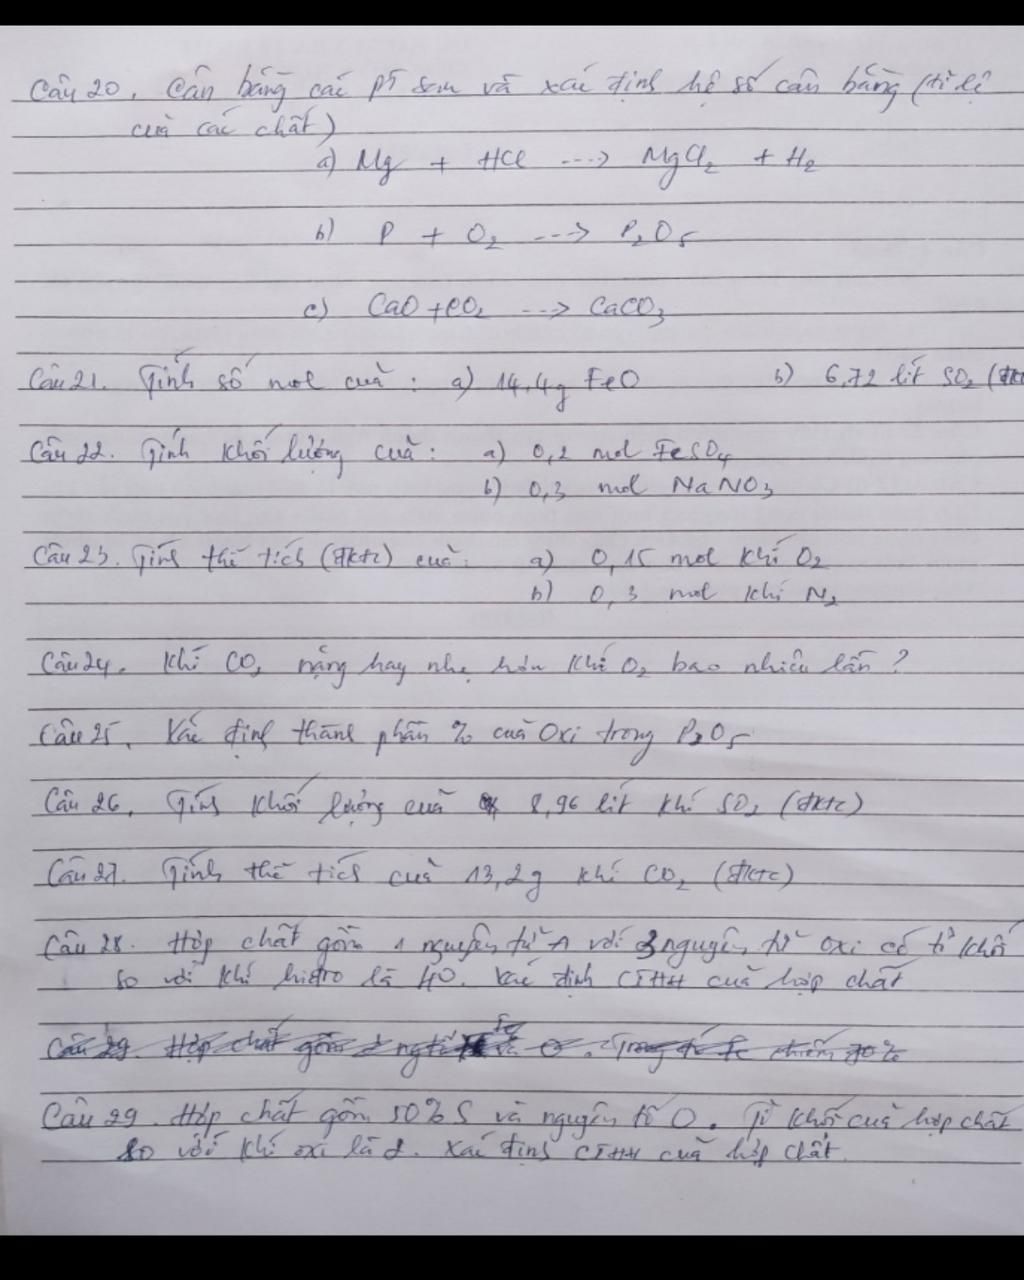 Câu 20. Cân bằng các pt sau và xác định hệ số cân bằng (tỉ lệ
của các chất)
a) Mg + HCl ---> MgCl₂ + H₂
b) P + O₂ ---> P₂O₅
c) CaO + CO₂ ---> CaCO₃
Câu 21. Tính số mol của : a) 14,4g FeO b) 6,72 lít SO₂ (đkt
Câu 22. Tính khối lượng của : a) 0,2 mol FeSO₄
b) 0,3 mol NaNO₃
Câu 23. Tính thể tích (đktc) của : a) 0,15 mol khí O₂
b) 0,3 mol khí N₂
Câu 24. Khí CO₂ nặng hay nhẹ hơn khí O₂ bao nhiêu lần ?
Câu 25. Xác định thành phần % của Oxi trong P₂O₅
Câu 26. Tính khối lượng của 8,96 lít khí SO₂ (đktc)
Câu 27. Tính thể tích của 13,2g khí CO₂ (đktc)
Câu 28. Hợp chất gồm 1 nguyên tử A với 3 nguyên tử oxi có tỉ khối
so với khí hiđro là 40. Xác định CTHH của hợp chất
Câu 29. Hợp chất gồm Fe và O. Trong đó Fe chiếm 70%
Câu 29. Hợp chất gồm 50% S và nguyên tố O. Tỉ khối của hợp chất
so với khí oxi là 2. Xác định CTHH của hợp chất.